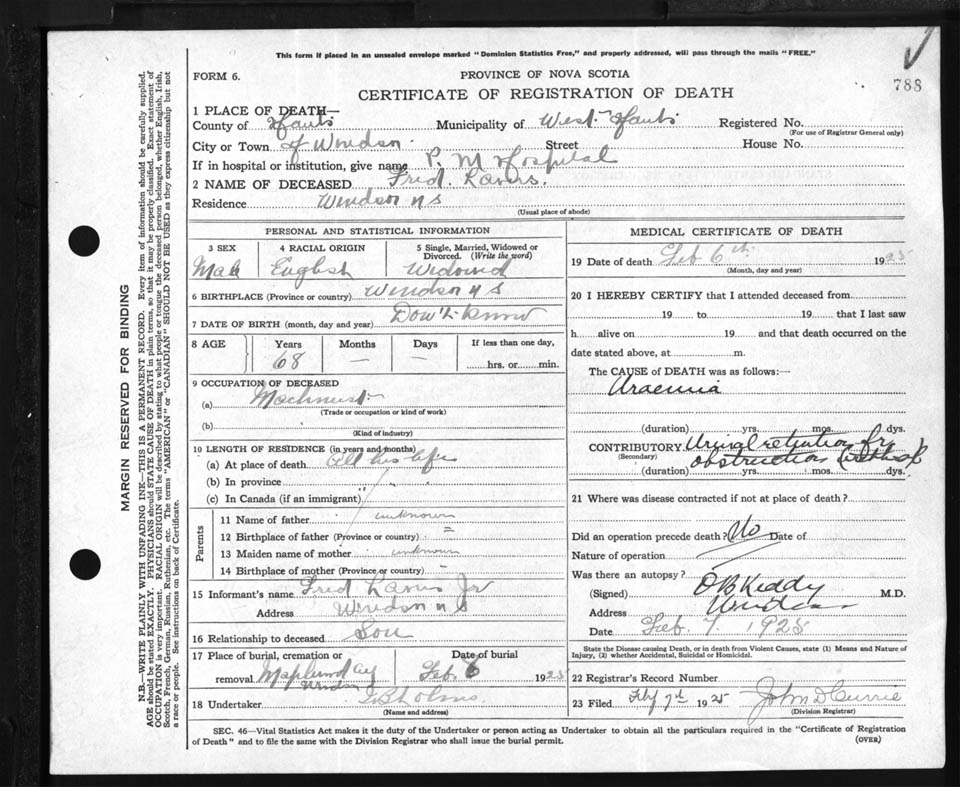 This form if placed in an unsealed envelope marked "Dominion Statistics Free," and properly addressed, will pass through the mails "FREE."
788
FORM 6.
PROVINCE OF NOVA SCOTIA
CERTIFICATE OF REGISTRATION OF DEATH
1 PLACE OF DEATH—
County of Hants Municipality of West Hants Registered No.
(For use of Registrar General only)
City or Town of Windsor Street House No.
If in hospital or institution, give name P. M Hospital
2 NAME OF DECEASED Fred.
Residence Windsor N S
(Usual place of abode)
PERSONAL AND STATISTICAL INFORMATION
3 SEX 4 RACIAL ORIGIN 5 Single, Married, Widowed or Divorced. (Write the word)
Male English Widowed
6 BIRTHPLACE (Province or country) Windsor N S
7 DATE OF BIRTH (month, day and year) Don't know
8 AGE Years Months Days If less than one day,
68 — — hrs. or min.
9 OCCUPATION OF DECEASED
(a) Machinist
(Trade or occupation or kind of work)
(b)
(Kind of industry)
10 LENGTH OF RESIDENCE (in years and months)
(a) At place of death All his life
(b) In province " "
(c) In Canada (if an immigrant)
Parents
11 Name of father unknown
12 Birthplace of father (Province or country) =
13 Maiden name of mother unknown
14 Birthplace of mother (Province or country)
15 Informant's name Fred Jr
Address Windsor N S
16 Relationship to deceased Son
17 Place of burial, cremation or removal Date of burial
Windsor Feb. 1925
18 Undertaker
(Name and address)
MEDICAL CERTIFICATE OF DEATH
19 Date of death Feb 6th 1925
(Month, day and year)
20 I HEREBY CERTIFY that I attended deceased from
19 to 19 that I last saw
h alive on 19 and that death occurred on the
date stated above, at m.
The CAUSE of DEATH was as follows:—
Uraemia
(duration) yrs. mos. dys.
CONTRIBUTORY Urinal retention fr
(Secondary) obstruction
(duration) yrs. mos. dys.
21 Where was disease contracted if not at place of death?
Did an operation precede death? No Date of
Nature of operation
Was there an autopsy?
(Signed) O B Keddy M.D.
Address Windsor
Date Feb. 7. 1925
State the Disease causing Death, or in death from Violent Causes, state (1) Means and Nature of
Injury, (2) whether Accidental, Suicidal or Homicidal.
22 Registrar's Record Number
23 Filed Feby 7th 1925 John D Currie
(Division Registrar)
SEC. 46—Vital Statistics Act makes it the duty of the Undertaker or person acting as Undertaker to obtain all the particulars required in the "Certificate of Registration
of Death" and to file the same with the Division Registrar who shall issue the burial permit. (OVER)
MARGIN RESERVED FOR BINDING
N.B.—WRITE PLAINLY WITH UNFADING INK—THIS IS A PERMANENT RECORD. Every item of information should be carefully supplied.
AGE should be stated EXACTLY. PHYSICIANS should STATE CAUSE OF DEATH in plain terms, so that it may be properly classified. Exact statement of
OCCUPATION is very important. RACIAL ORIGIN will be described by stating to what people or tongue the deceased person belonged, whether English, Irish,
Scotch, French, German, Russian, Ruthenian, etc. The terms "AMERICAN" or "CANADIAN" SHOULD NOT BE USED as they express citizenship but not
a race or people. See instructions on back of Certificate.